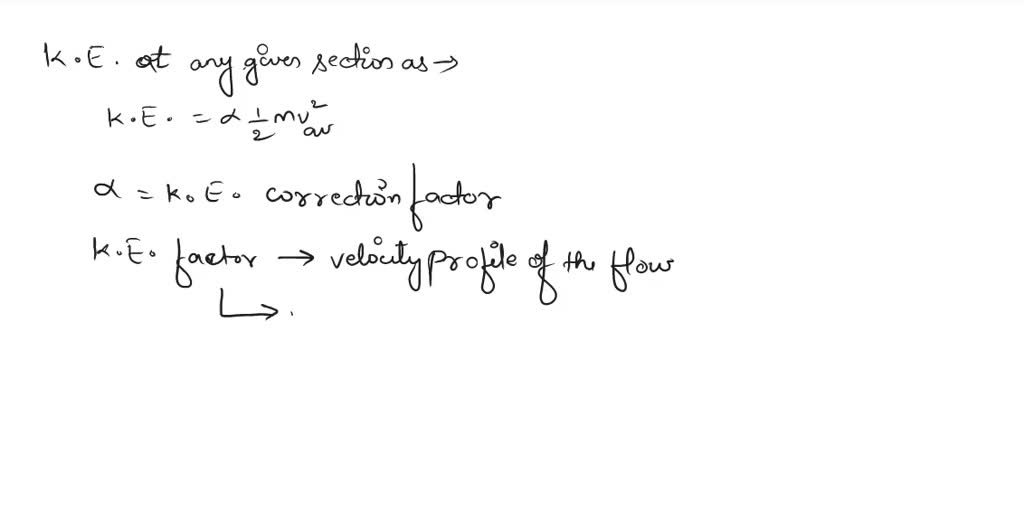 K.E. at any given section as →
K.E. = α 1/2 mv²av
α = K.E. correction factor
K.E. factor → velocity profile of the flow
↳ .